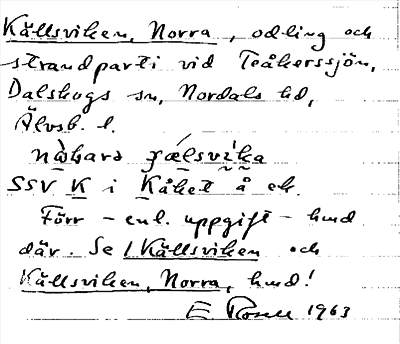 Källsviken, Norra, odling och
strandparti vid Teåkerssjön,
Dalskogs sn, Nordals hd,
Älvsb. l.
nò̱bara ɟǽlsvi̱ka
SSV K i Kåket å ek.
Förr – enl. uppgift – hmd
där. Se 1 Källsviken och
Källsviken, Norra, hmd!
E Rosell 1963